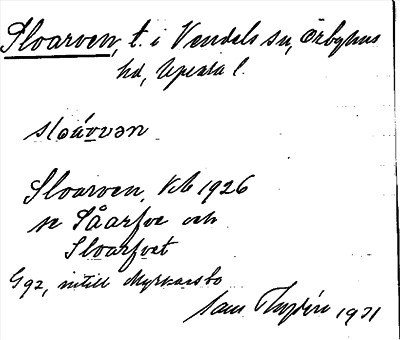 Sloarven, t. i Vendels sn, Örbyhus
hd, Uppsala l.
sloárvən
Sloarven, Vib 1926
se Såarfve och
Sloarfvet
G 92, intill Myrkarsbo
1931